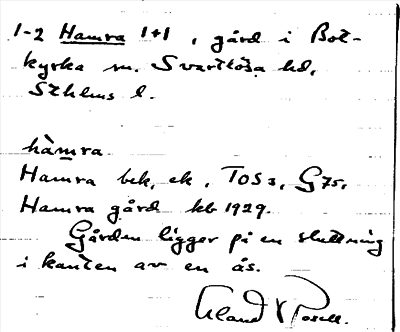 1-2 Hamra 1+1, gård i Bot-
kyrka sn. Svartlösa hd,
Sthlms l.
hàmra
Hamra bek, ek, TOS3, G75,
Hamra gård kb 1929.
Gården ligger på en sluttning
i kanten av en ås.